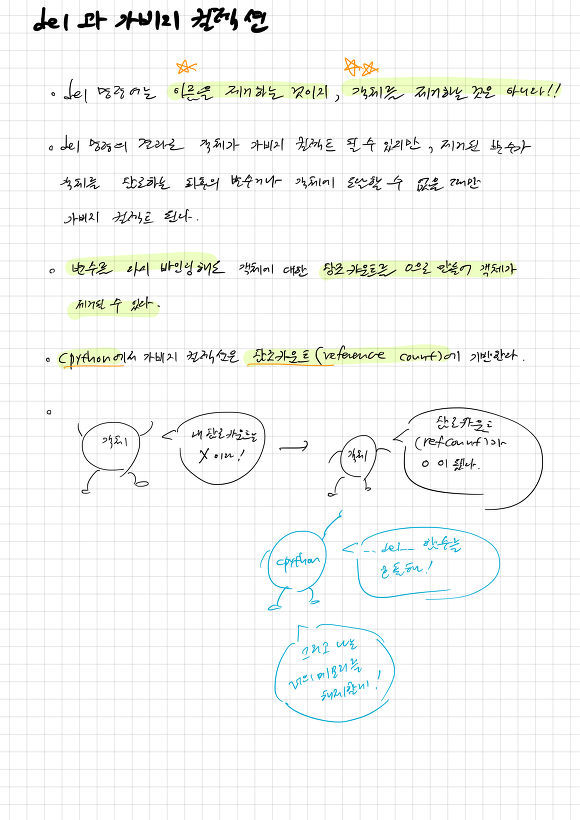 del 과 가비지 컬렉션
del 명령어는 이름을 제거하는 것이지, 객체를 제거하는 것은 아니다!!
del 명령의 결과로 객체가 가비지 컬렉트 될 수 있지만, 제거된 변수가
객체를 참조하는 최후의 변수거나 객체에 도달할 수 없을 때만
가비지 컬렉트 된다.
변수를 다시 바인딩해도 객체에 대한 참조카운트를 0으로 만들어 객체가
제거될 수 있다.
cpython에서 가비지 컬렉션은 참조카운트(reference count)에 기반한다.
객체
내 참조카운트는
X 이다!
객체
참조카운트
(refcount)가
0 이 됐다.
cpython
__del__ 함수를
호출해!
그리고 나는
너의 메모리를
해제할게!